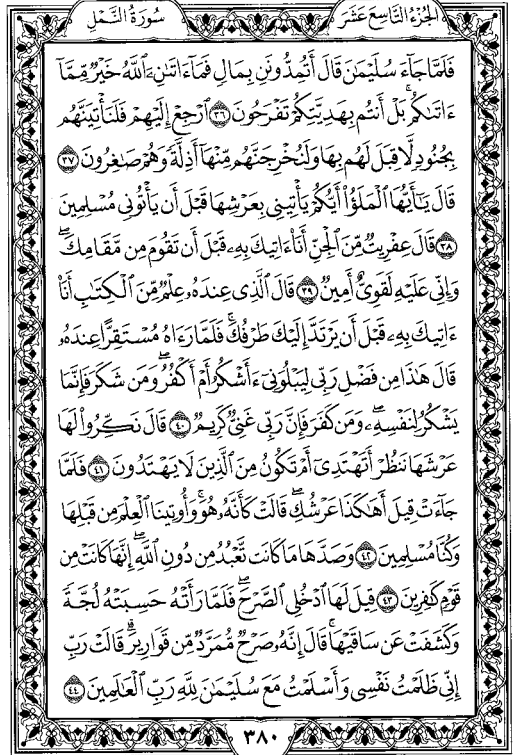 الجُزْءُ التَّاسِعَ عَشَرَ
سُورَةُ النَّمْلِ
فَلَمَّا جَآءَ سُلَيْمَٰنَ قَالَ أَتُمِدُّونَنِ بِمَالٍ فَمَآ ءَاتَىٰنِۦَ ٱللَّهُ خَيْرٌ مِّمَّآ
ءَاتَىٰكُم ۚ بَلْ أَنتُم بِهَدِيَّتِكُمْ تَفْرَحُونَ ٣٦ ٱرْجِعْ إِلَيْهِمْ فَلَنَأْتِيَنَّهُم
بِجُنُودٍ لَّا قِبَلَ لَهُم بِهَا وَلَنُخْرِجَنَّهُم مِّنْهَآ أَذِلَّةً وَهُمْ صَٰغِرُونَ ٣٧
قَالَ يَٰٓأَيُّهَا ٱلْمَلَؤُا۟ أَيُّكُمْ يَأْتِينِى بِعَرْشِهَا قَبْلَ أَن يَأْتُونِى مُسْلِمِينَ
٣٨ قَالَ عِفْرِيتٌ مِّنَ ٱلْجِنِّ أَنَا۠ ءَاتِيكَ بِهِۦ قَبْلَ أَن تَقُومَ مِن مَّقَامِكَ ۖ
وَإِنِّى عَلَيْهِ لَقَوِىٌّ أَمِينٌ ٣٩ قَالَ ٱلَّذِى عِندَهُۥ عِلْمٌ مِّنَ ٱلْكِتَٰبِ أَنَا۠
ءَاتِيكَ بِهِۦ قَبْلَ أَن يَرْتَدَّ إِلَيْكَ طَرْفُكَ ۚ فَلَمَّا رَءَاهُ مُسْتَقِرًّا عِندَهُۥ
قَالَ هَٰذَا مِن فَضْلِ رَبِّى لِيَبْلُوَنِىٓ ءَأَشْكُرُ أَمْ أَكْفُرُ ۖ وَمَن شَكَرَ فَإِنَّمَا
يَشْكُرُ لِنَفْسِهِۦ ۖ وَمَن كَفَرَ فَإِنَّ رَبِّى غَنِىٌّ كَرِيمٌ ٤٠ قَالَ نَكِّرُوا۟ لَهَا
عَرْشَهَا نَنظُرْ أَتَهْتَدِىٓ أَمْ تَكُونُ مِنَ ٱلَّذِينَ لَا يَهْتَدُونَ ٤١ فَلَمَّا
جَآءَتْ قِيلَ أَهَٰكَذَا عَرْشُكِ ۖ قَالَتْ كَأَنَّهُۥ هُوَ ۚ وَأُوتِينَا ٱلْعِلْمَ مِن قَبْلِهَا
وَكُنَّا مُسْلِمِينَ ٤٢ وَصَدَّهَا مَا كَانَت تَّعْبُدُ مِن دُونِ ٱللَّهِ ۖ إِنَّهَا كَانَتْ مِن
قَوْمٍ كَٰفِرِينَ ٤٣ قِيلَ لَهَا ٱدْخُلِى ٱلصَّرْحَ ۖ فَلَمَّا رَأَتْهُ حَسِبَتْهُ لُجَّةً
وَكَشَفَتْ عَن سَاقَيْهَا ۚ قَالَ إِنَّهُۥ صَرْحٌ مُّمَرَّدٌ مِّن قَوَارِيرَ ۗ قَالَتْ رَبِّ
إِنِّى ظَلَمْتُ نَفْسِى وَأَسْلَمْتُ مَعَ سُلَيْمَٰنَ لِلَّهِ رَبِّ ٱلْعَٰلَمِينَ ٤٤
٣٨٠